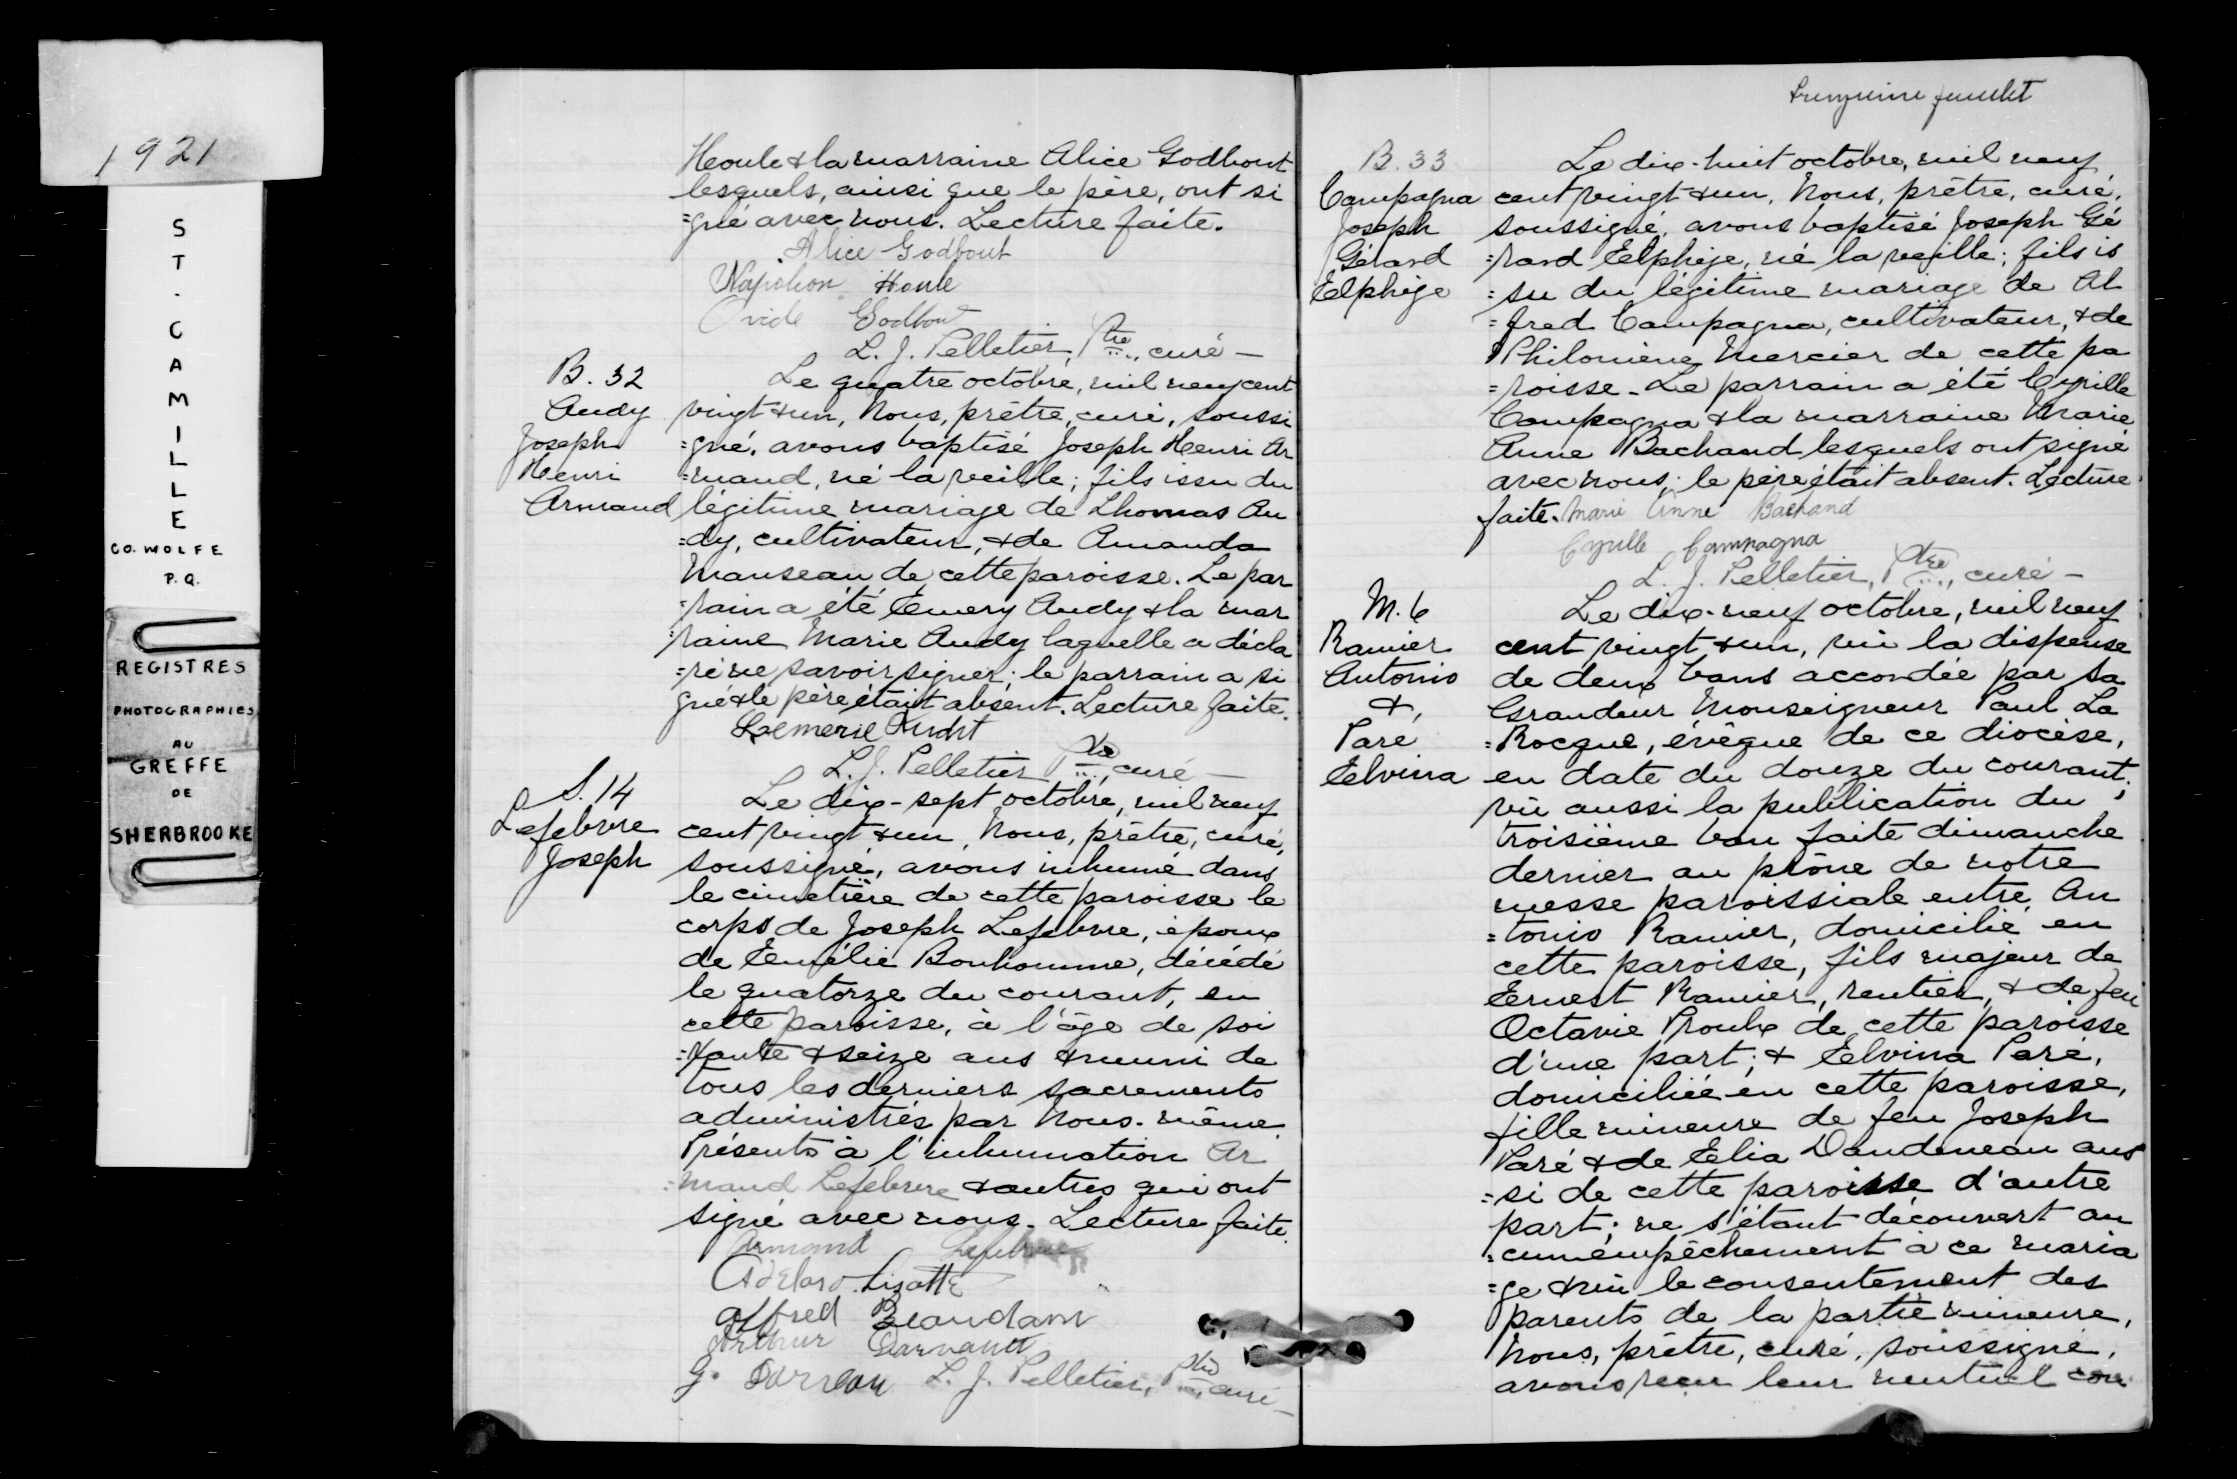 1921
ST. CAMILLE
CO. WOLFE
P.Q.
REGISTRES
PHOTOGRAPHIES
AU
GREFFE
DE
SHERBROOKE
Houle & la marraine Alice Godbout
lesquels, ainsi que le père, ont si
=gné avec nous. Lecture faite.
Alice Godbout
Napoleon Houle
Ovide Godbout
L. J. Pelletier, Ptre, curé -
B. 32
Audy
Joseph
Henri
Armand
Le quatre octobre, mil neuf cent
vingt & un, Nous, prêtre, curé, soussi
=gné, avons baptisé Joseph Henri Ar
=mand, né la veille; fils issu du
légitime mariage de Thomas Au
=dy, cultivateur, & de Amanda
Manseau de cette paroisse. Le par
=rain a été Emery Audy & la mar
=raine Marie Audy laquelle a décla
=ré ne savoir signer; le parrain a si
gné & le père était absent. Lecture faite.
L. J. Pelletier Ptre, curé -
S. 14
Lefebvre
Joseph
Le dix-sept octobre, mil neuf
cent vingt & un, Nous, prêtre, curé,
soussigné, avons inhumé dans
le cimetière de cette paroisse le
corps de Joseph Lefebvre, époux
de Emélie Bonhomme, décédé
le quatorze du courant, en
cette paroisse, à l'âge de soi
=xante & seize ans & muni de
tous les derniers sacrements
administrés par Nous-même.
Présents à l'inhumation Ar
=mand Lefebvre & autres qui ont
signé avec nous. Lecture faite.
Armand Lefebvre
Adelard Lizotte
Alfred Beaudoin
Arthur
G. Darveau L. J. Pelletier, Ptre, curé -
feuillet
B. 33
Campagna
Joseph
Gérard
Elphège
Le dix-huit octobre, mil neuf
cent vingt & un, Nous, prêtre, curé,
soussigné, avons baptisé Joseph Gé
=rard Elphège, né la veille; fils is
=su du légitime mariage de Al
=fred Campagna, cultivateur, & de
Philomène Mercier de cette pa
=roisse. Le parrain a été Cyrille
Campagna & la marraine Marie
Anne Bachand lesquels ont signé
avec nous; le père était absent. Lecture
faite. Marie Anne Bachand
Cyrille Campagna
L. J. Pelletier, Ptre, curé -
M. 6
Ramier
Antonio
&
Paré
Elvina
Le dix-neuf octobre, mil neuf
cent vingt & un, vu la dispense
de deux bans accordée par Sa
Grandeur Monseigneur Paul La
=Rocque, évêque de ce diocèse,
en date du douze du courant;
vu aussi la publication du
troisième ban faite dimanche
dernier au prône de notre
messe paroissiale entre An
=tonio Ramier, domicilié en
cette paroisse, fils majeur de
Ernest Ramier, rentier, & de feu
Octavie Proulx de cette paroisse
d'une part; & Elvina Paré,
domiciliée en cette paroisse,
fille mineure de feu Joseph
Paré & de Elia Dandeneau aus
=si de cette paroisse d'autre
part; ne s'étant découvert au
=cun empêchement à ce maria
=ge & vu le consentement des
parents de la partie mineure,
Nous, prêtre, curé, soussigné,
avons reçu leur mutuel con